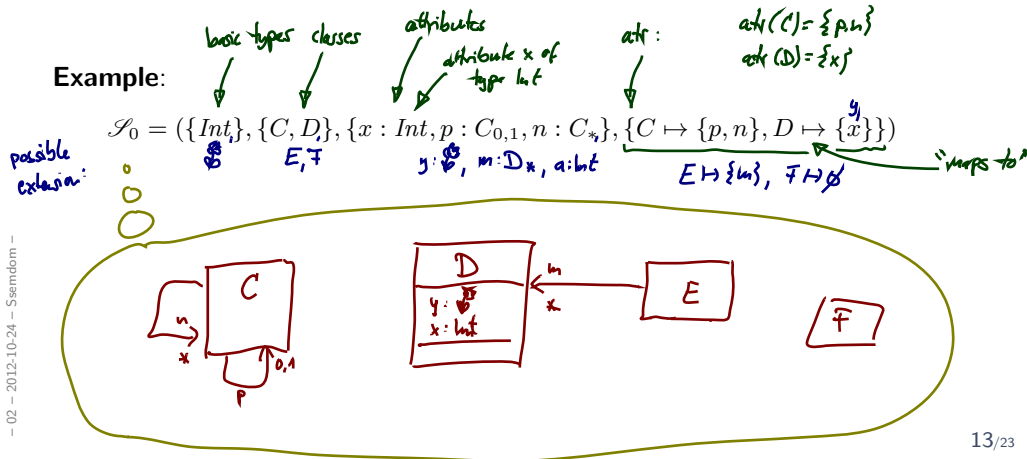 basic types classes
attributes
attribute x of
type Int
atr :
atr(C) = {p,n}
atr(D) = {x}
Example:
𝒮₀ = ({Int}, {C, D}, {x : Int, p : C₀,₁, n : C∗}, {C ↦ {p, n}, D ↦ {x}})
y,
possible
extension:
E, F
m : D∗, a : Int
E ↦ {m}, F ↦ ∅
"maps to"
C
n
*
p
0,1
D
y :
x : Int
m
*
E
F
– 02 – 2012-10-24 – Ssemdom –
13/23